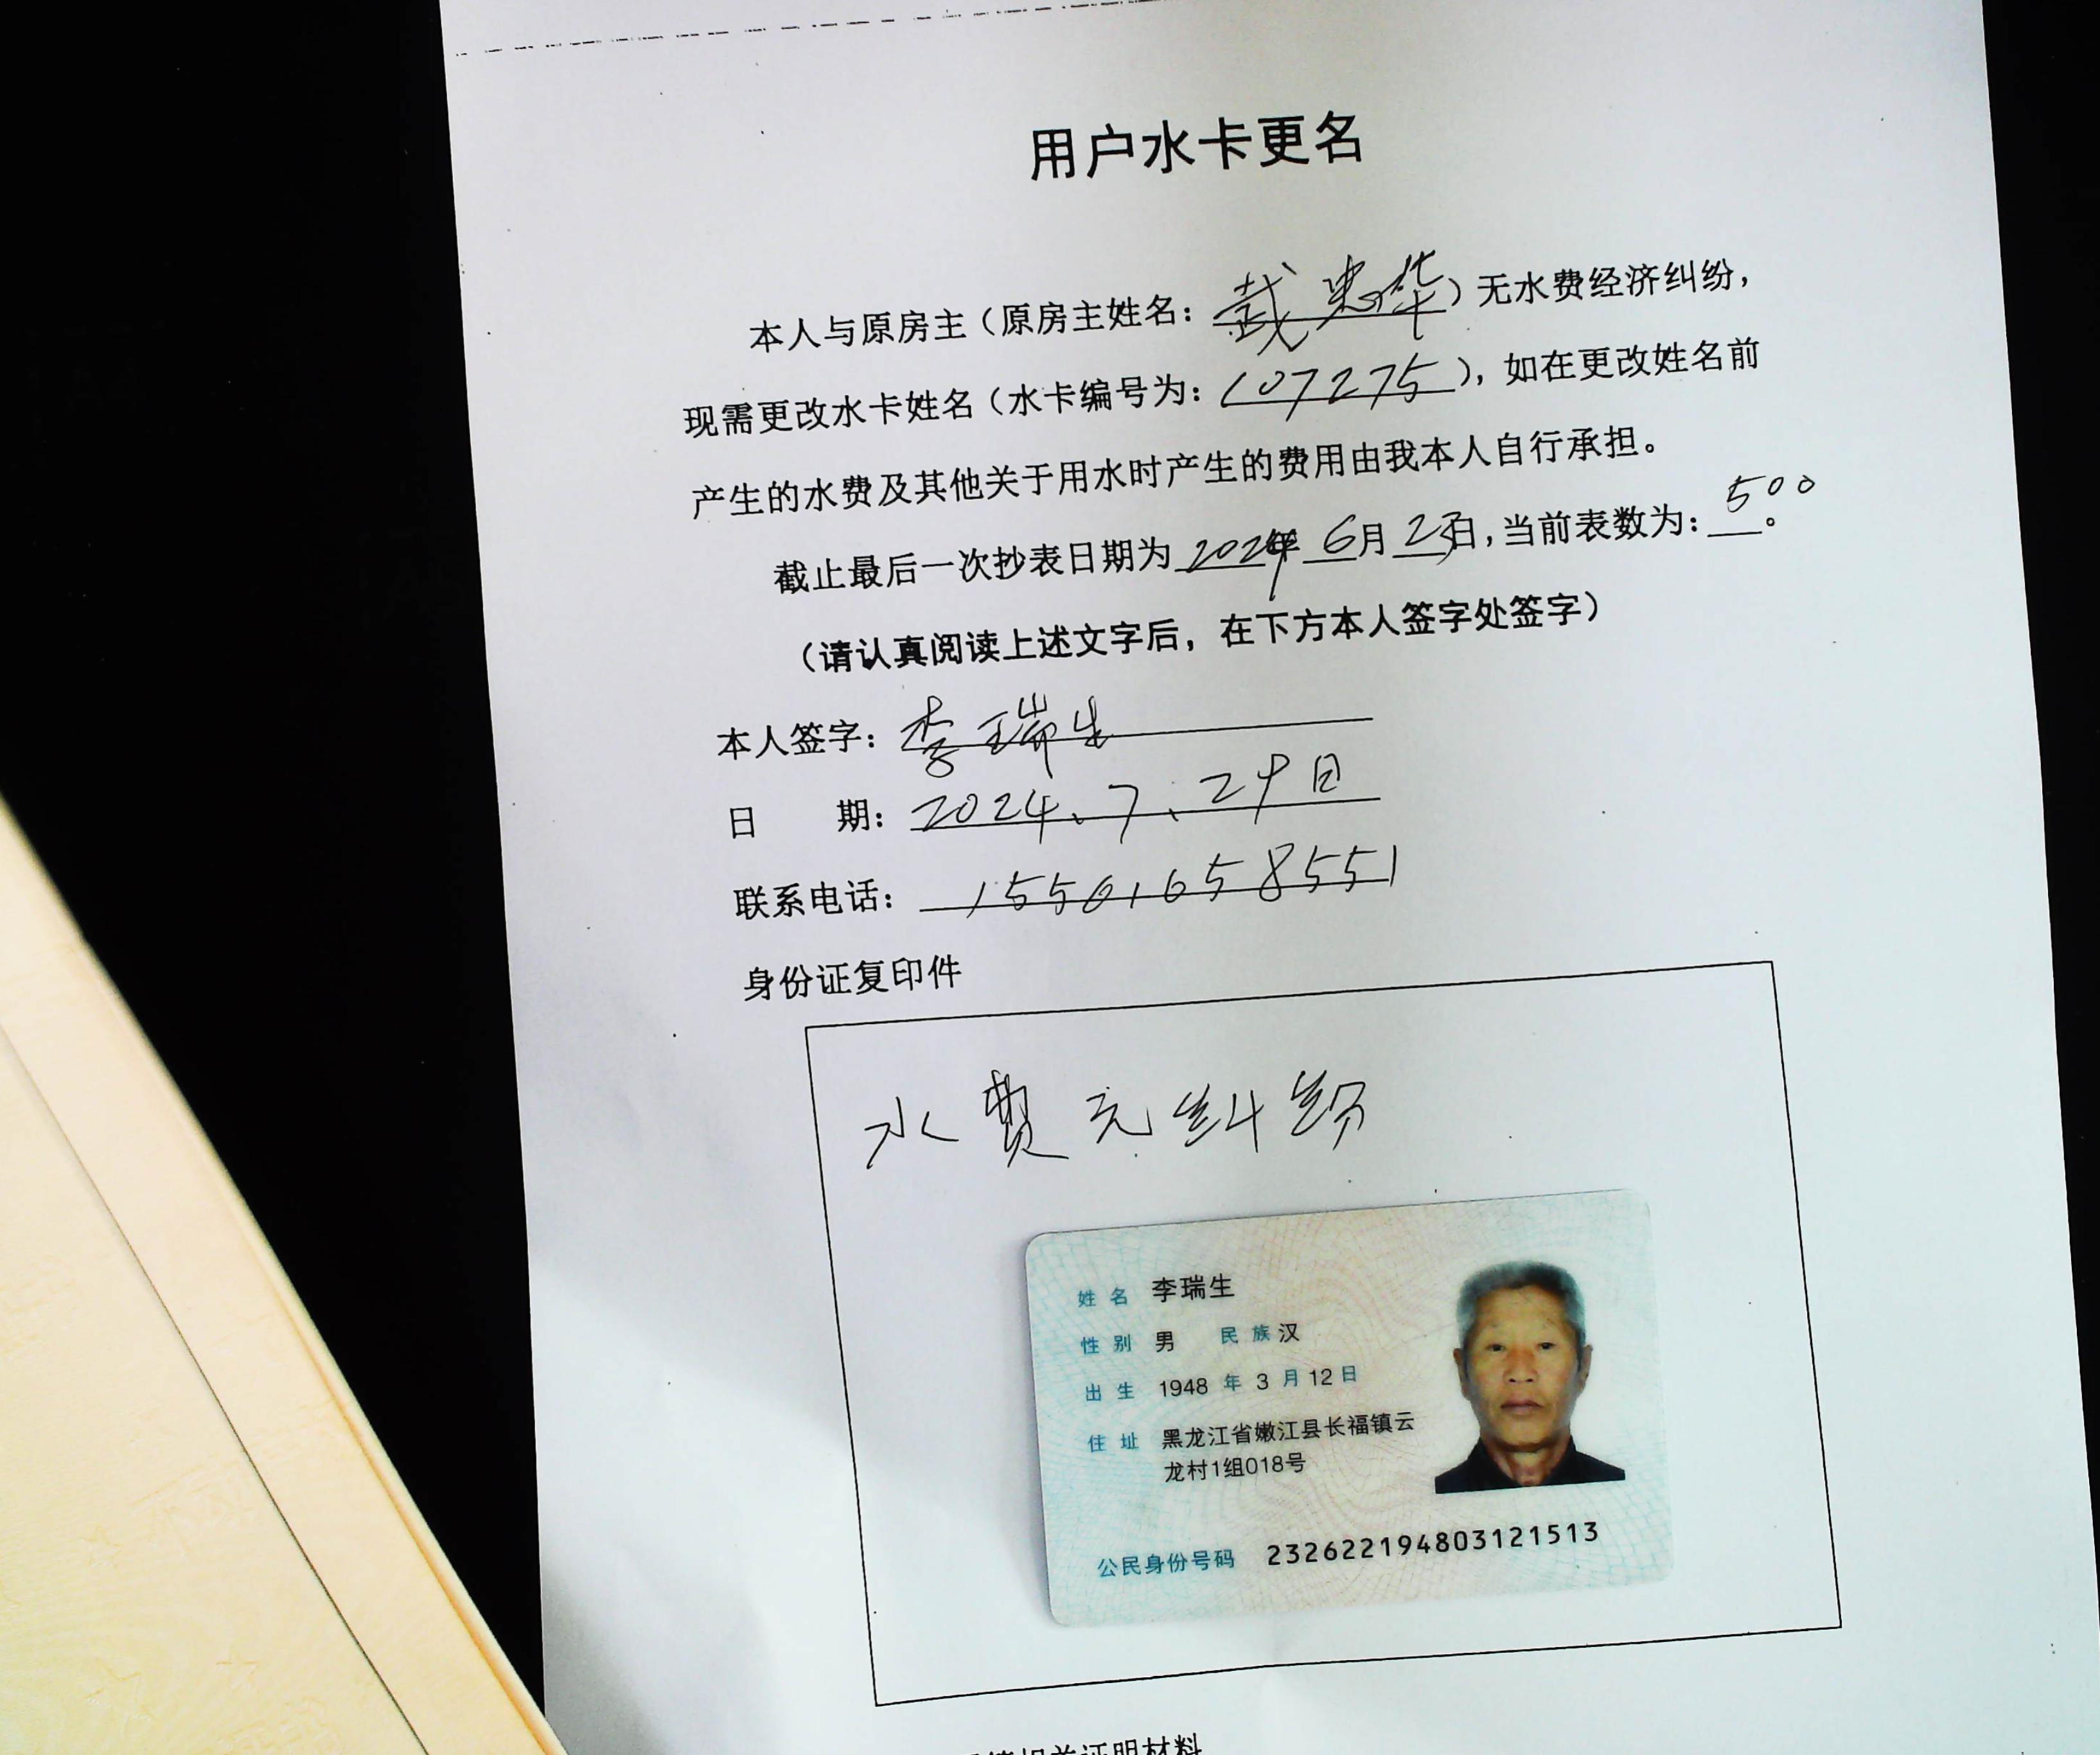 用户水卡更名
本人与原房主（原房主姓名：戴忠华）无水费经济纠纷，
现需更改水卡姓名（水卡编号为：107275），如在更改姓名前
产生的水费及其他关于用水时产生的费用由我本人自行承担。
截止最后一次抄表日期为2024年6月23日，当前表数为：500。
（请认真阅读上述文字后，在下方本人签字处签字）
本人签字：李瑞生
日 期：2024、7、29日
联系电话：15501658551
身份证复印件
水费无纠纷
姓名 李瑞生
性别 男 民族 汉
出生 1948 年 3 月 12 日
住址 黑龙江省嫩江县长福镇云
龙村1组018号
公民身份号码 232622194803121513
相关证明材料